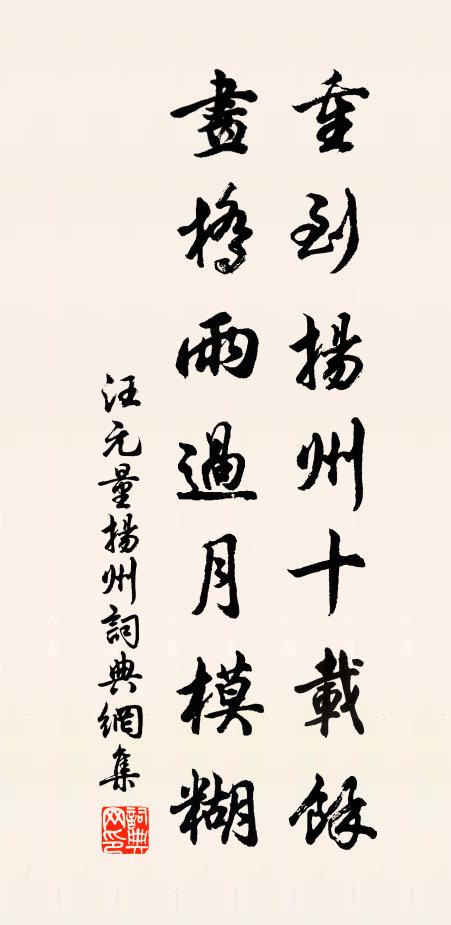 重到揚州十載餘
畫橋雨過月模糊
汪元量揚州詞典網集
詞典網印